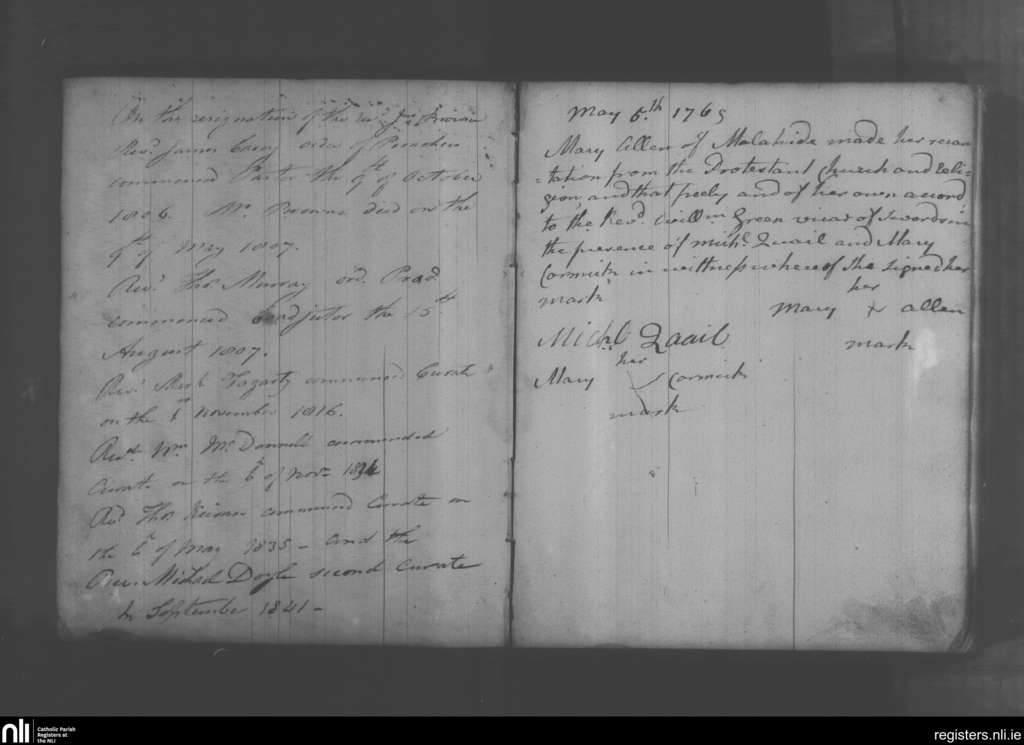 On the resignation of the Revd
Revd. James Carey order of Preachers
commenced the 9th of October
1806. Mr. Browne died on the
9th of May 1807.
Revd. Thos Murray ord. Pred.
commenced Coadjutor the 15th
August 1807.
Revd. Fogarty commenced Curate
on the November 1816.
Revd. Wm. McDonnell commenced
Curate on the 6th of Novr
Revd Thos commenced Curate on
the 6th of May 1835 - and the
Rev. Michael Doyle second curate
in September 1841 -
May 5th. 1765
Mary Allen of Malahide made her recan
-tation from the Protestant Church and Reli-
gion, and that freely and of her own accord
to the Revd. Willm Green vicar of Swords in
the presence of Michl. Quail and Mary
Cormick in witness whereof She signed her
mark
her
Mary x allen
mark
Michl Quail
her
Mary Cormick
mark
nli
Catholic Parish
Registers at
the NLI
registers.nli.ie